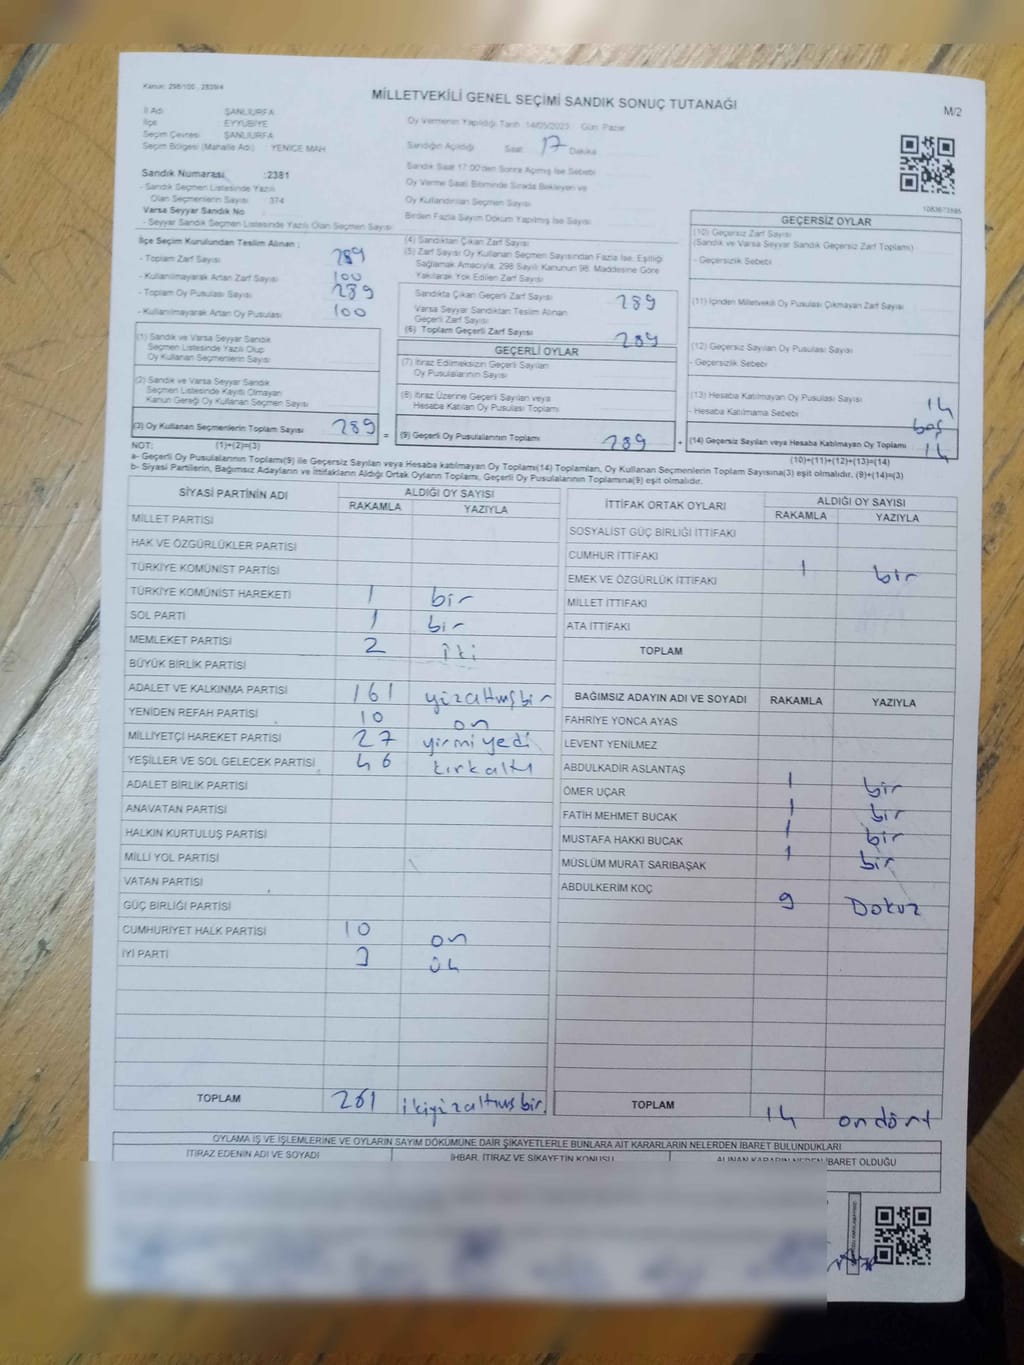 Kanun: 298/100 , 2839/4
MİLLETVEKİLİ GENEL SEÇİMİ SANDIK SONUÇ TUTANAĞI
M/2
İl Adı : ŞANLIURFA
İlçe : EYYÜBİYE
Seçim Çevresi : ŞANLIURFA
Seçim Bölgesi (Mahalle Adı) YENİCE MAH
Sandık Numarası :2381
- Sandık Seçmen Listesinde Yazılı
Olan Seçmenlerin Sayısı 374
Varsa Seyyar Sandık No
- Seyyar Sandık Seçmen Listesinde Yazılı Olan Seçmen Sayısı
Oy Vermenin Yapıldığı Tarih :14/05/2023 Gün: Pazar
Sandığın Açıldığı Saat 17 Dakika
Sandık Saat 17:00'den Sonra Açılmış İse Sebebi
Oy Verme Saati Bitiminde Sırada Bekleyen ve
Oy Kullandırılan Seçmen Sayısı
Birden Fazla Sayım Döküm Yapılmış İse Sayısı
İlçe Seçim Kurulundan Teslim Alınan :
- Toplam Zarf Sayısı 289
- Kullanılmayarak Artan Zarf Sayısı 100
- Toplam Oy Pusulası Sayısı 289
- Kullanılmayarak Artan Oy Pusulası 100
(1) Sandık ve Varsa Seyyar Sandık
Seçmen Listesinde Yazılı Olup
Oy Kullanan Seçmenlerin Sayısı
(2) Sandık ve Varsa Seyyar Sandık
Seçmen Listesinde Kayıtlı Olmayan
Kanun Gereği Oy Kullanan Seçmen Sayısı
(3) Oy Kullanan Seçmenlerin Toplam Sayısı 289
=
(4) Sandıktan Çıkan Zarf Sayısı
(5) Zarf Sayısı Oy Kullanan Seçmen Sayısından Fazla İse, Eşitliği
Sağlamak Amacıyla, 298 Sayılı Kanunun 98. Maddesine Göre
Yakılarak Yok Edilen Zarf Sayısı
Sandıkta Çıkan Geçerli Zarf Sayısı 289
Varsa Seyyar Sandıktan Teslim Alınan
Geçerli Zarf Sayısı
(6) Toplam Geçerli Zarf Sayısı 289
GEÇERLİ OYLAR
(7) İtiraz Edilmeksizin Geçerli Sayılan
Oy Pusulalarının Sayısı
(8) İtiraz Üzerine Geçerli Sayılan veya
Hesaba Katılan Oy Pusulası Toplamı
(9) Geçerli Oy Pusulalarının Toplamı 289
+
GEÇERSİZ OYLAR
(10) Geçersiz Zarf Sayısı
(Sandık ve Varsa Seyyar Sandık Geçersiz Zarf Toplamı)
- Geçersizlik Sebebi
(11) İçinden Milletvekili Oy Pusulası Çıkmayan Zarf Sayısı
(12) Geçersiz Sayılan Oy Pusulası Sayısı
- Geçersizlik Sebebi
(13) Hesaba Katılmayan Oy Pusulası Sayısı 14
- Hesaba Katılmama Sebebi boş
(14) Geçersiz Sayılan veya Hesaba Katılmayan Oy Toplamı 14
NOT: (1)+(2)=(3)
(10)+(11)+(12)+(13)=(14)
a- Geçerli Oy Pusulalarının Toplamı(9) ile Geçersiz Sayılan veya Hesaba katılmayan Oy Toplamı(14) Toplamları, Oy Kullanan Seçmenlerin Toplam Sayısına(3) eşit olmalıdır, (9)+(14)=(3)
b- Siyasi Partilerin, Bağımsız Adayların ve İttifakların Aldığı Ortak Oyların Toplamı, Geçerli Oy Pusulalarının Toplamına(9) eşit olmalıdır.
SİYASİ PARTİNİN ADI ALDIĞI OY SAYISI
RAKAMLA YAZIYLA
MİLLET PARTİSİ
HAK VE ÖZGÜRLÜKLER PARTİSİ
TÜRKİYE KOMÜNİST PARTİSİ
TÜRKİYE KOMÜNİST HAREKETİ 1 bir
SOL PARTİ 1 bir
MEMLEKET PARTİSİ 2 iki
BÜYÜK BİRLİK PARTİSİ
ADALET VE KALKINMA PARTİSİ 161 yüzaltmışbir
YENİDEN REFAH PARTİSİ 10 on
MİLLİYETÇİ HAREKET PARTİSİ 27 yirmiyedi
YEŞİLLER VE SOL GELECEK PARTİSİ 46 kırkaltı
ADALET BİRLİK PARTİSİ
ANAVATAN PARTİSİ
HALKIN KURTULUŞ PARTİSİ
MİLLİ YOL PARTİSİ
VATAN PARTİSİ
GÜÇ BİRLİĞİ PARTİSİ
CUMHURİYET HALK PARTİSİ 10 on
İYİ PARTİ 3
TOPLAM 261 ikiyüzaltmışbir
İTTİFAK ORTAK OYLARI ALDIĞI OY SAYISI
RAKAMLA YAZIYLA
SOSYALİST GÜÇ BİRLİĞİ İTTİFAKI
CUMHUR İTTİFAKI 1 bir
EMEK VE ÖZGÜRLÜK İTTİFAKI
MİLLET İTTİFAKI
ATA İTTİFAKI
TOPLAM
BAĞIMSIZ ADAYIN ADI VE SOYADI RAKAMLA YAZIYLA
FAHRİYE YONCA AYAS
LEVENT YENİLMEZ
ABDULKADİR ASLANTAŞ 1 bir
ÖMER UÇAR 1 bir
FATİH MEHMET BUCAK 1 bir
MUSTAFA HAKKI BUCAK 1 bir
MÜSLÜM MURAT SARIBAŞAK
ABDULKERİM KOÇ 9 Dokuz
TOPLAM 14 ondört
OYLAMA İŞ VE İŞLEMLERİNE VE OYLARIN SAYIM DÖKÜMÜNE DAİR ŞİKAYETLERLE BUNLARA AİT KARARLARIN NELERDEN İBARET BULUNDUKLARI
İTİRAZ EDENİN ADI VE SOYADI İHBAR, İTİRAZ VE ŞİKAYETİN KONUSU ALINAN KARARIN NEDEN İBARET OLDUĞU